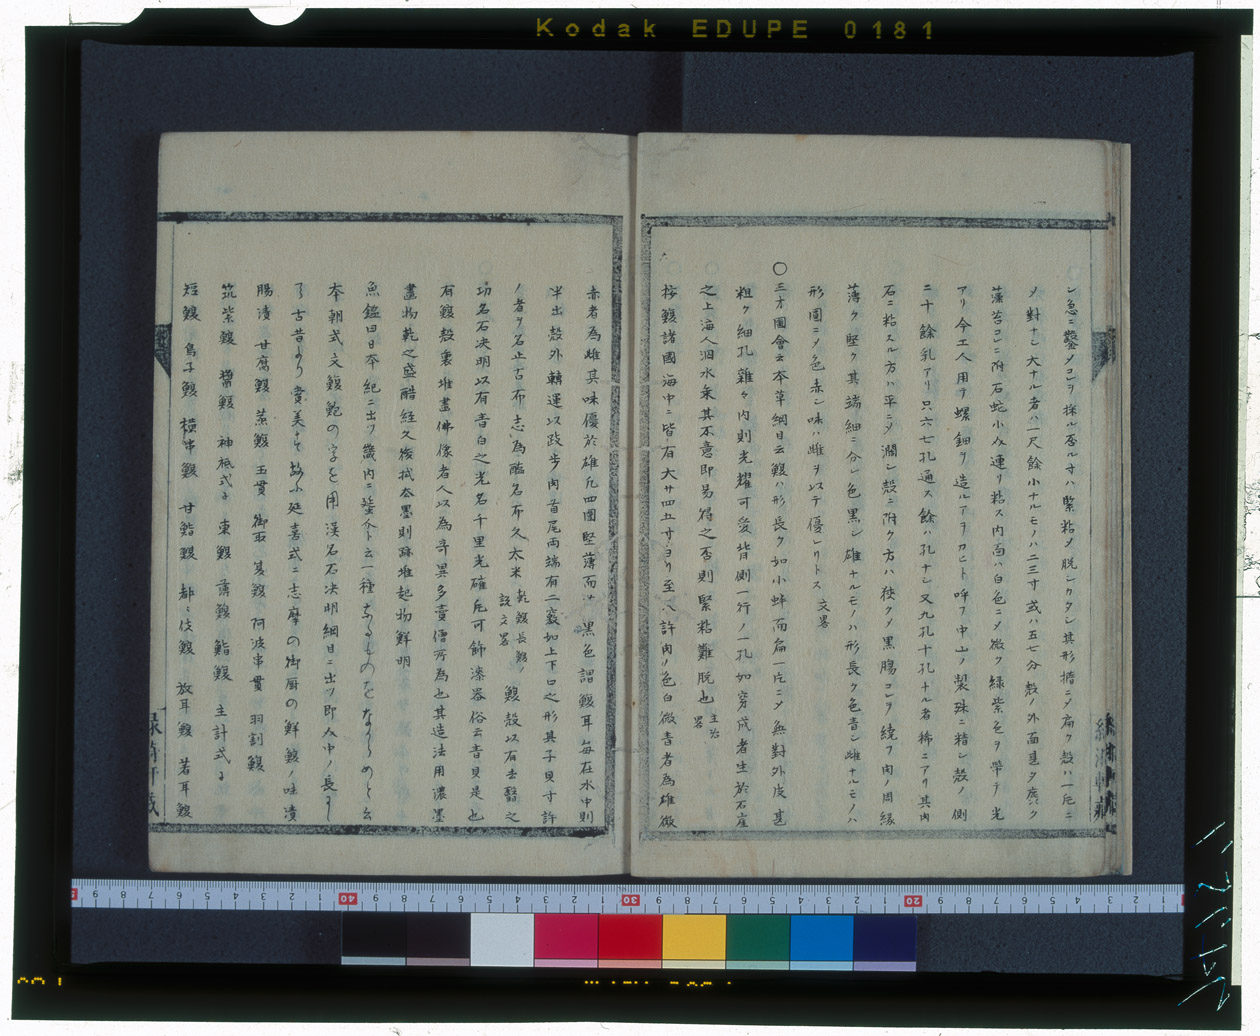 Kodak EDUPE 0181
シ急ニ鑿メコレヲ採ル否ル寸ハ緊粘メ脱シカタシ其形擔ニメ扁ク殻ハ一片ニ
メ對ナシ大ナル者ハ一尺餘小ナルモノハ二三寸或ハ五七分殻ノ外面甚タ麁ク
藻苔コレニ附石蛇小仌連リ粘ス内面ハ白色ニメ微ク緑紫色ヲ帶テ光
アリ今工人用テ螺鈿ヲ造ルアヲカヒト呼フ中山ノ製殊ニ精シ殻ノ側
二十餘乳アリ只六七孔通ス餘ハ孔ナシ又九孔十孔ナル者稀ニアリ其肉
石ニ粘スル方ハ平ニメ濶シ殻ニ附ク方ハ狹クメ黒腸コレヲ繞フ肉ノ周縁
薄ク堅ク其端細ニ分レ色黒シ雄ナルモノハ形長ク色青シ雌ナルモノハ
形圓ニメ色赤シ味ハ雌ヲ以テ優レリトス 文畧
〇三才圖會云本草綱目云鰒ハ形長ク如小蚌而扁一片ニメ無對外皮甚
粗ク細孔雜々内則光耀可愛背側一行ノ一孔如穿成者生於石崖
之上海人泅水乗其不意即易得之否則緊粘難脱也 主治畧
按鰒諸國海中ニ皆有大サ四五寸ヨリ至八許肉ノ色白微青者為雄微
赤者為雌其味優於雄凢四圍堅薄而 黒色謂鰒耳毎在水中則
半出殻外轉運以政歩肉首尾兩端有二竅如上下口之形其子貝寸許
ノ者ヲ名止古布志為醢名布久太米 乾鰒長鰒ノ説文畧 鰒殻以有去翳之
功名石决明以有青白之光名千里光確凢可飾漆器俗云青貝是也
有鰒殻裏堆畫佛像者人以為奇異多賣僧所為也其造法用濃墨
畫物乾之盛酷経久後拭去墨則跡堆起物鮮明
魚鑑曰日本紀ニ出ツ畿内ニ蜑介ト云一種
本朝式文鰒鮑の字を用漢名石决明綱目ニ出ツ即仌中ノ長
古昔より賞美 故小延喜式ニ志摩の御厨の鮮鰒ノ味漬
腸漬 甘腐鰒 蒸鰒 玉貫 御取 夏鰒 阿波串貫 羽割鰒
筑紫鰒 醤鰒 神祇式ニ 東鰒 薄鰒 鮨鰒 主計式ニ
短鰒 鳥子鰒 横串鰒 甘鮨鰒 都々伎鰒 放耳鰒 着耳鰒